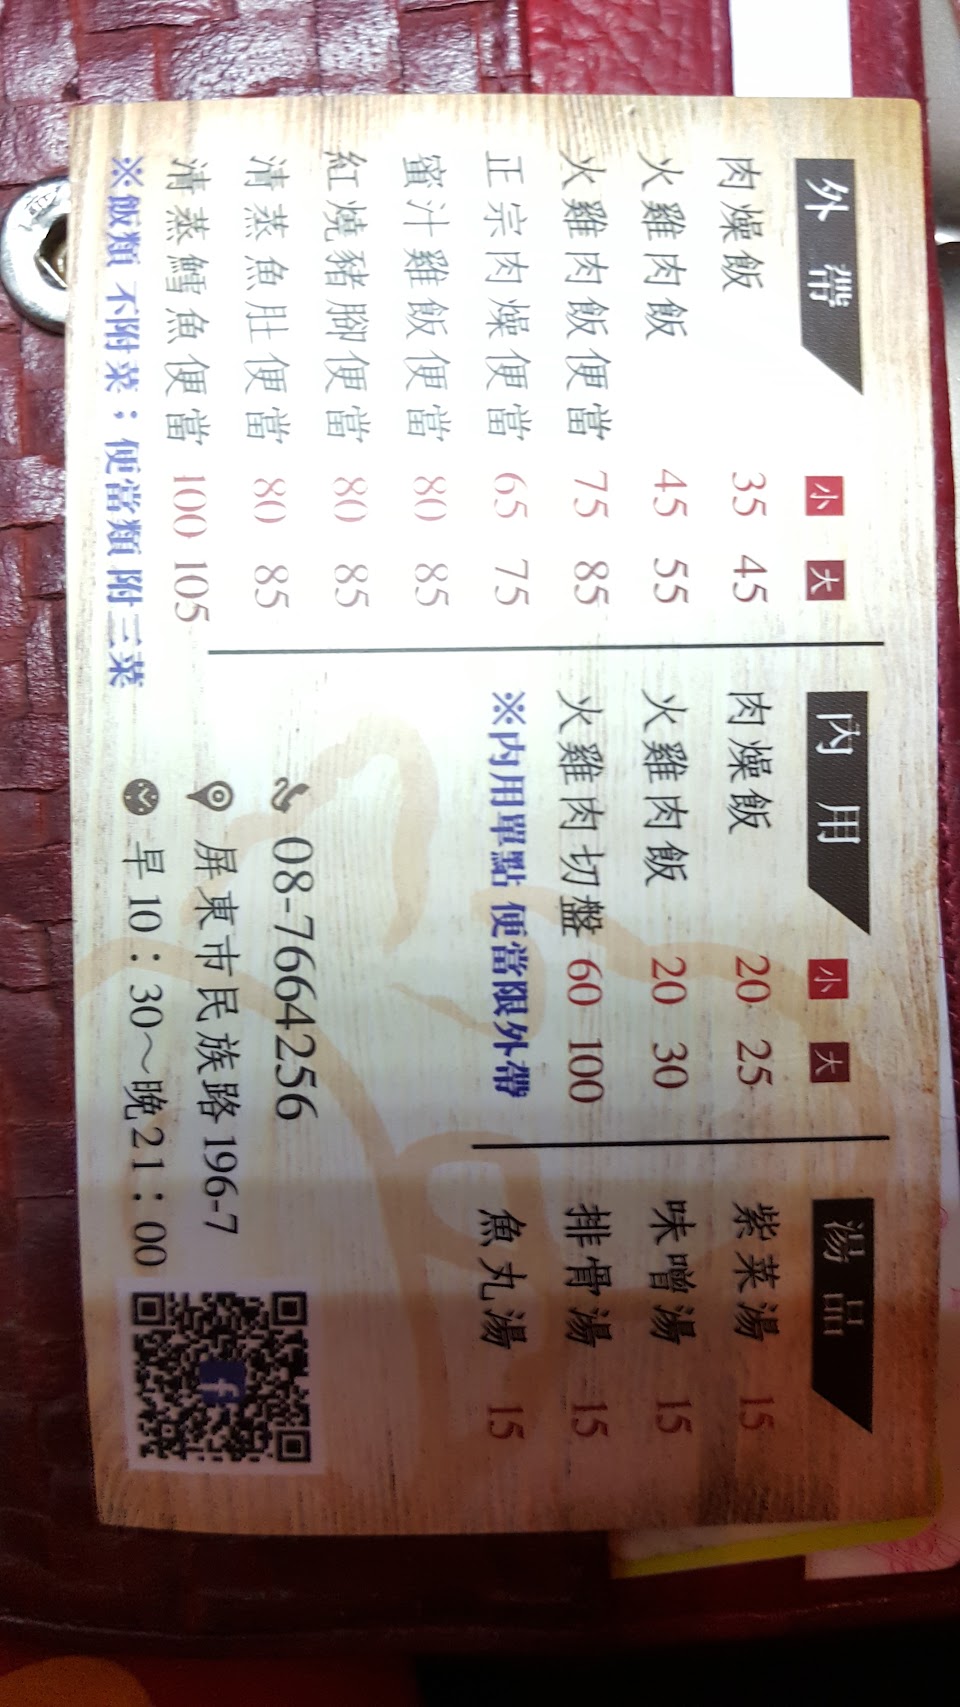 外帶 小 大
肉燥飯 35 45
火雞肉飯 45 55
火雞肉飯便當 75 85
正宗肉燥便當 65 75
蜜汁雞飯便當 80 85
紅燒豬腳便當 80 85
清蒸魚肚便當 80 85
清蒸鱈魚便當 100 105
※飯類 不附菜；便當類 附三菜
內用 小 大
肉燥飯 20 25
火雞肉飯 20 30
火雞肉切盤 60 100
※內用單點 便當限外帶
湯品
紫菜湯 15
味噌湯 15
排骨湯 15
魚丸湯 15
08-7664256
屏東市民族路196-7
早10：30～晚21：00
f